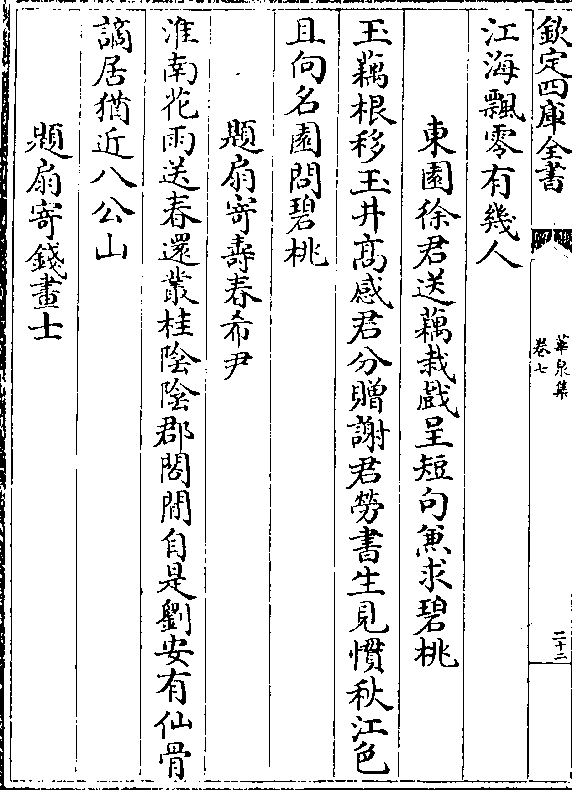 欽定四庫全書
華泉集
卷七
二十二
江海飄零有幾人
東園徐君送藕栽戲呈短句兼求碧桃
玉藕根移玉井高感君分贈謝君勞書生見慣秋江色
且向名園問碧桃
題扇寄壽春希尹
淮南花雨送春還叢桂陰陰郡閣間自是劉安有仙骨
謫居猶近八公山
題扇寄錢畫士